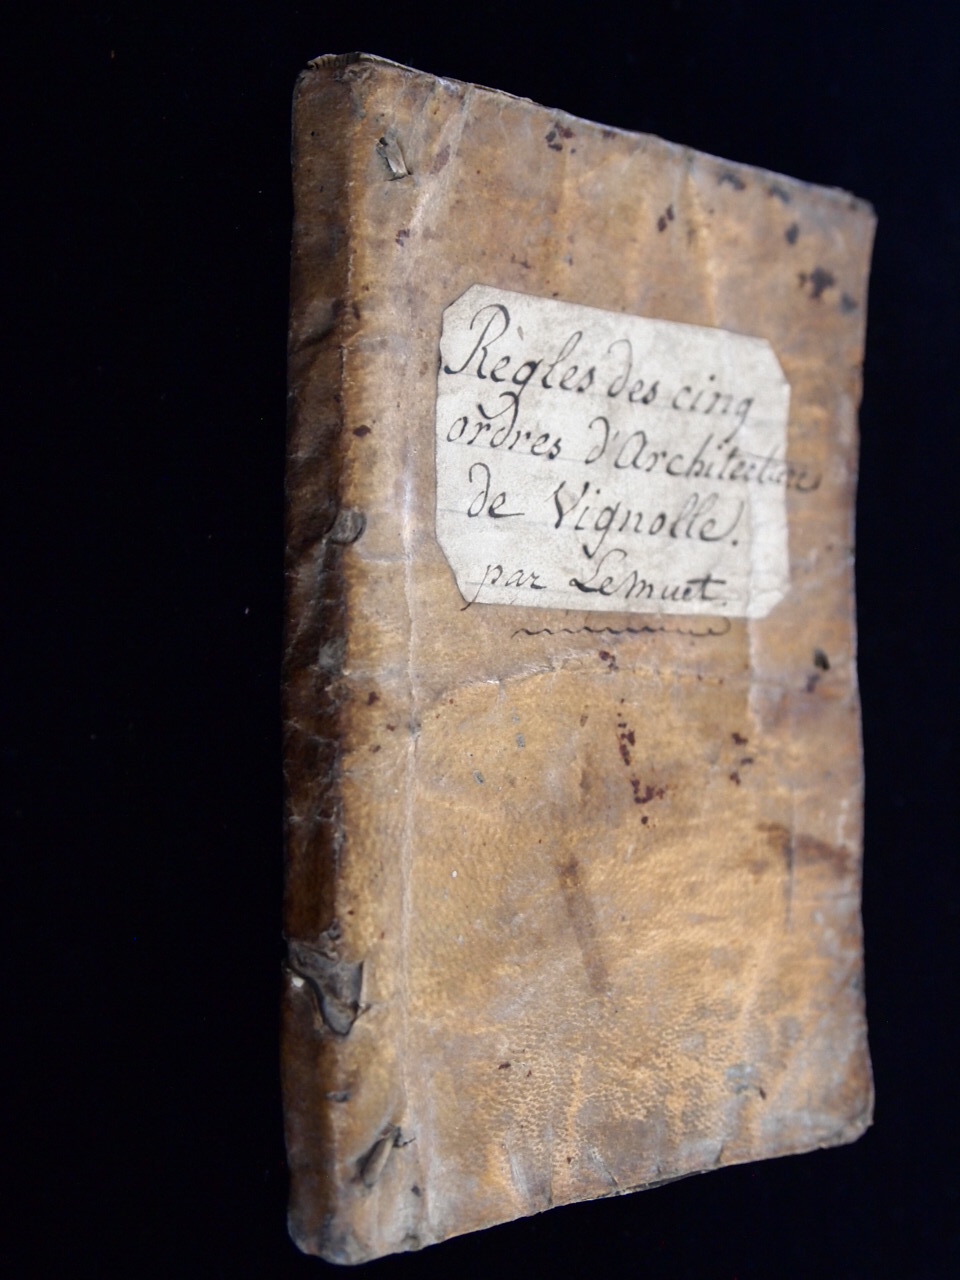 Règles des cinq
ordres d'Architecture
de Vignolle.
par Lemuet.